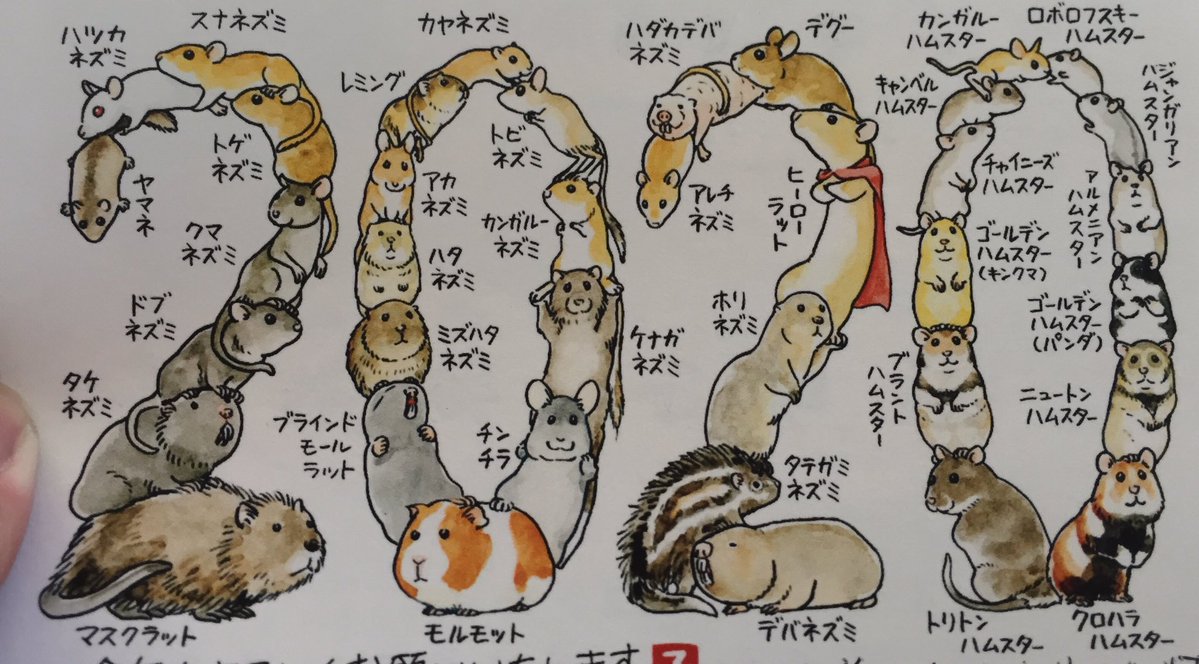 ハツカ
ネズミ
スナネズミ
トゲ
ネズミ
ヤマネ
クマ
ネズミ
ドブ
ネズミ
タケ
ネズミ
マスクラット
カヤネズミ
レミング
トビ
ネズミ
アカ
ネズミ
カンガルー
ネズミ
ハタ
ネズミ
ミズハタ
ネズミ
ケナガ
ネズミ
ブラインド
モール
ラット
チン
チラ
モルモット
ハダカデバ
ネズミ
デグー
アレチ
ネズミ
ヒーロー
ラット
ホリ
ネズミ
タテガミ
ネズミ
デバネズミ
カンガルー
ハムスター
ロボロフスキー
ハムスター
キャンベル
ハムスター
ジャンガリアン
ハムスター
チャイニーズ
ハムスター
アルメニアン
ハムスター
ゴールデン
ハムスター
(キンクマ)
ゴールデン
ハムスター
(パンダ)
ブラント
ハムスター
ニュートン
ハムスター
トリトン
ハムスター
クロハラ
ハムスター
お願いいたします